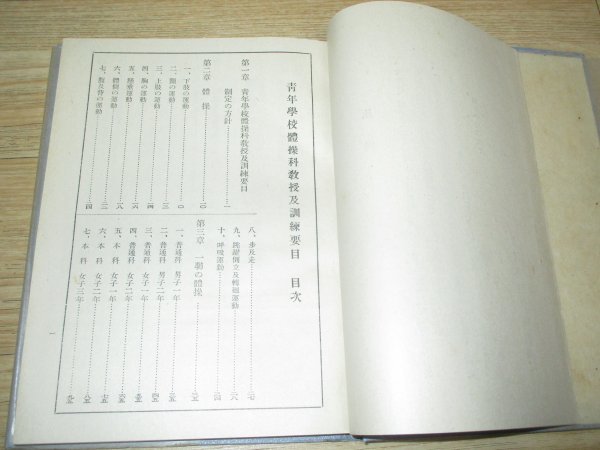 青年學校體操科教授及訓練要目 目次
第一章 青年學校體操科教授及訓練要目
制定の方針……一
第二章 體操……一〇
一、下肢の運動……一〇
二、頸の運動
三、上肢の運動
四、胸の運動
五、懸垂運動
六、體側の運動
七、腹及背の運動
八、步及走
九、跳躍倒立及轉廻運動
十、呼吸運動
第三章 一動の體操
一、普通科 男子一年
二、普通科 男子二年
三、普通科 女子一年
四、普通科 女子二年
五、本科 女子一年
六、本科 女子二年
七、本科 女子三年
一